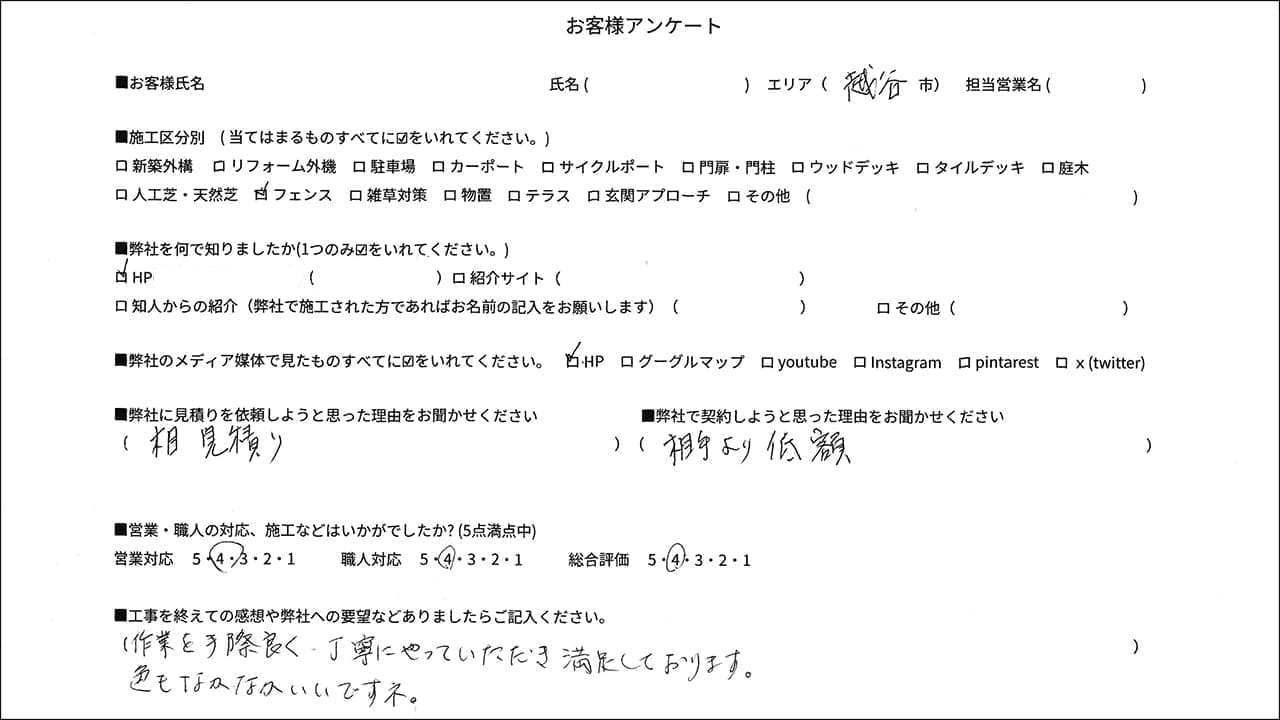 お客様アンケート
■お客様氏名 氏名 ( ) エリア ( 越谷 市) 担当営業名 ( )
■施工区分別 ( 当てはまるものすべてに☑をいれてください。)
□ 新築外構 □ リフォーム外機 □ 駐車場 □ カーポート □ サイクルポート □ 門扉・門柱 □ ウッドデッキ □ タイルデッキ □ 庭木
□ 人工芝・天然芝 ☑ フェンス □ 雑草対策 □ 物置 □ テラス □ 玄関アプローチ □ その他 ( )
■弊社を何で知りましたか(1つのみ☑をいれてください。)
☑ HP ( ) □ 紹介サイト ( )
□ 知人からの紹介（弊社で施工された方であればお名前の記入をお願いします） ( ) □ その他 ( )
■弊社のメディア媒体で見たものすべてに☑をいれてください。 ☑ HP □ グーグルマップ □ youtube □ Instagram □ pintarest □ x (twitter)
■弊社に見積りを依頼しようと思った理由をお聞かせください ■弊社で契約しようと思った理由をお聞かせください
( 相見積り ) ( 相手より低額 )
■営業・職人の対応、施工などはいかがでしたか? (5点満点中)
営業対応 5・4・3・2・1 職人対応 5・4・3・2・1 総合評価 5・4・3・2・1
■工事を終えての感想や弊社への要望などありましたらご記入ください。
(作業を手際良く、丁寧にやっていただき満足しております。 )
色もなかなかいいですネ。